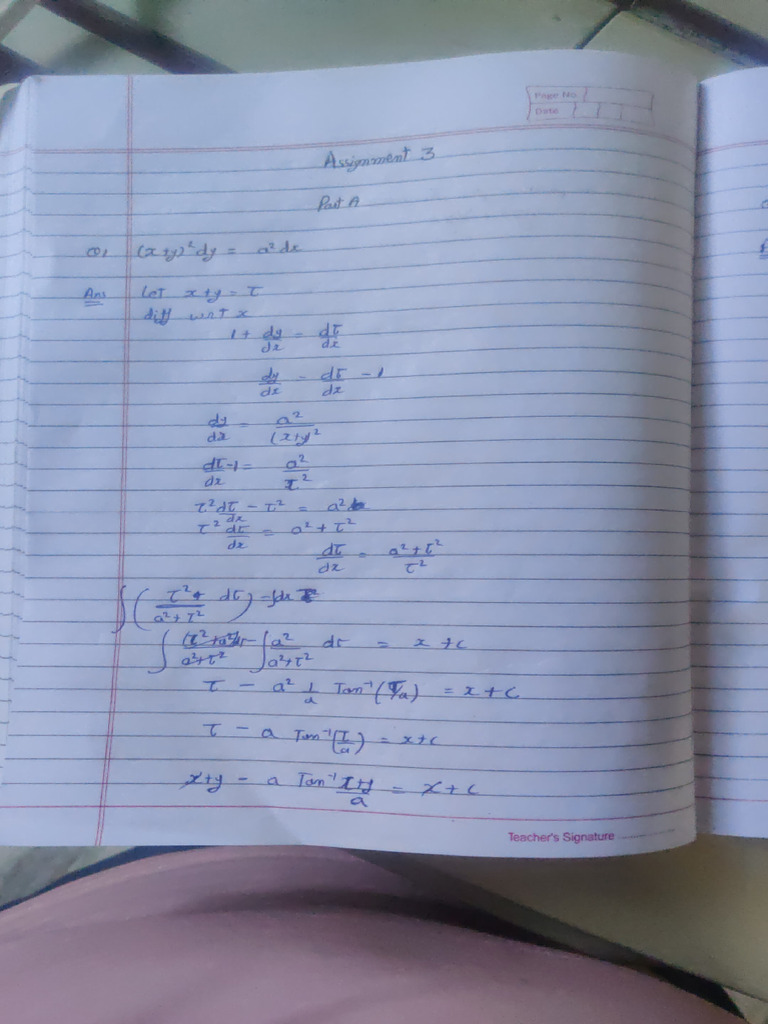 Page No.
Date
Assignment 3
Part A
Q1 (x+y)² dy = a² dx
Ans Let x+y = τ
diff wrt x
1 + dy/dx = dτ/dx
dy/dx = dτ/dx - 1
dy/dx = a²/(x+y²
dτ/dx - 1 = a²/τ²
τ² dτ/dx - τ² = a²
τ² dτ/dx = a² + τ²
dτ/dx = a² + τ²/τ²
∫ (τ²/a² + τ² dτ) = ∫dx
∫ (τ² + a²)dτ/a² + τ² - ∫ a²/a² + τ² dτ = x + c
τ - a² 1/a Tan⁻¹ (τ/a) = x + c
τ - a Tan⁻¹ (τ/a) = x + c
x+y - a Tan⁻¹ x+y/a = x + c
Teacher's Signature